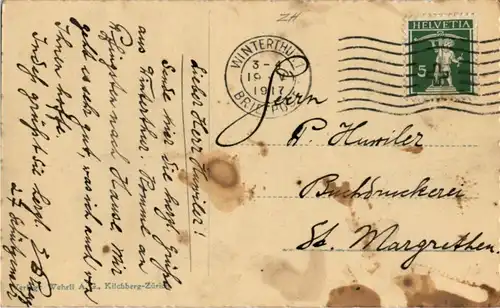 ZH
HELVETIA
5
WINTERTHUR
3-4
19
1917
BRIEFPOST
Herrn
P. Huwiler
Buchdruckerei
St. Margrethen.
Lieber Herr Huwiler!
Sende hier die herzl. Grüsse
aus Winterthur. Komme an
Pfingsten nach Hause. Mir
geht es sehr gut, was ich auch von
Ihnen hoffe.
Indess grüsst Sie herzl.
Verlag Wehrli A.-G., Kilchberg-Zürich